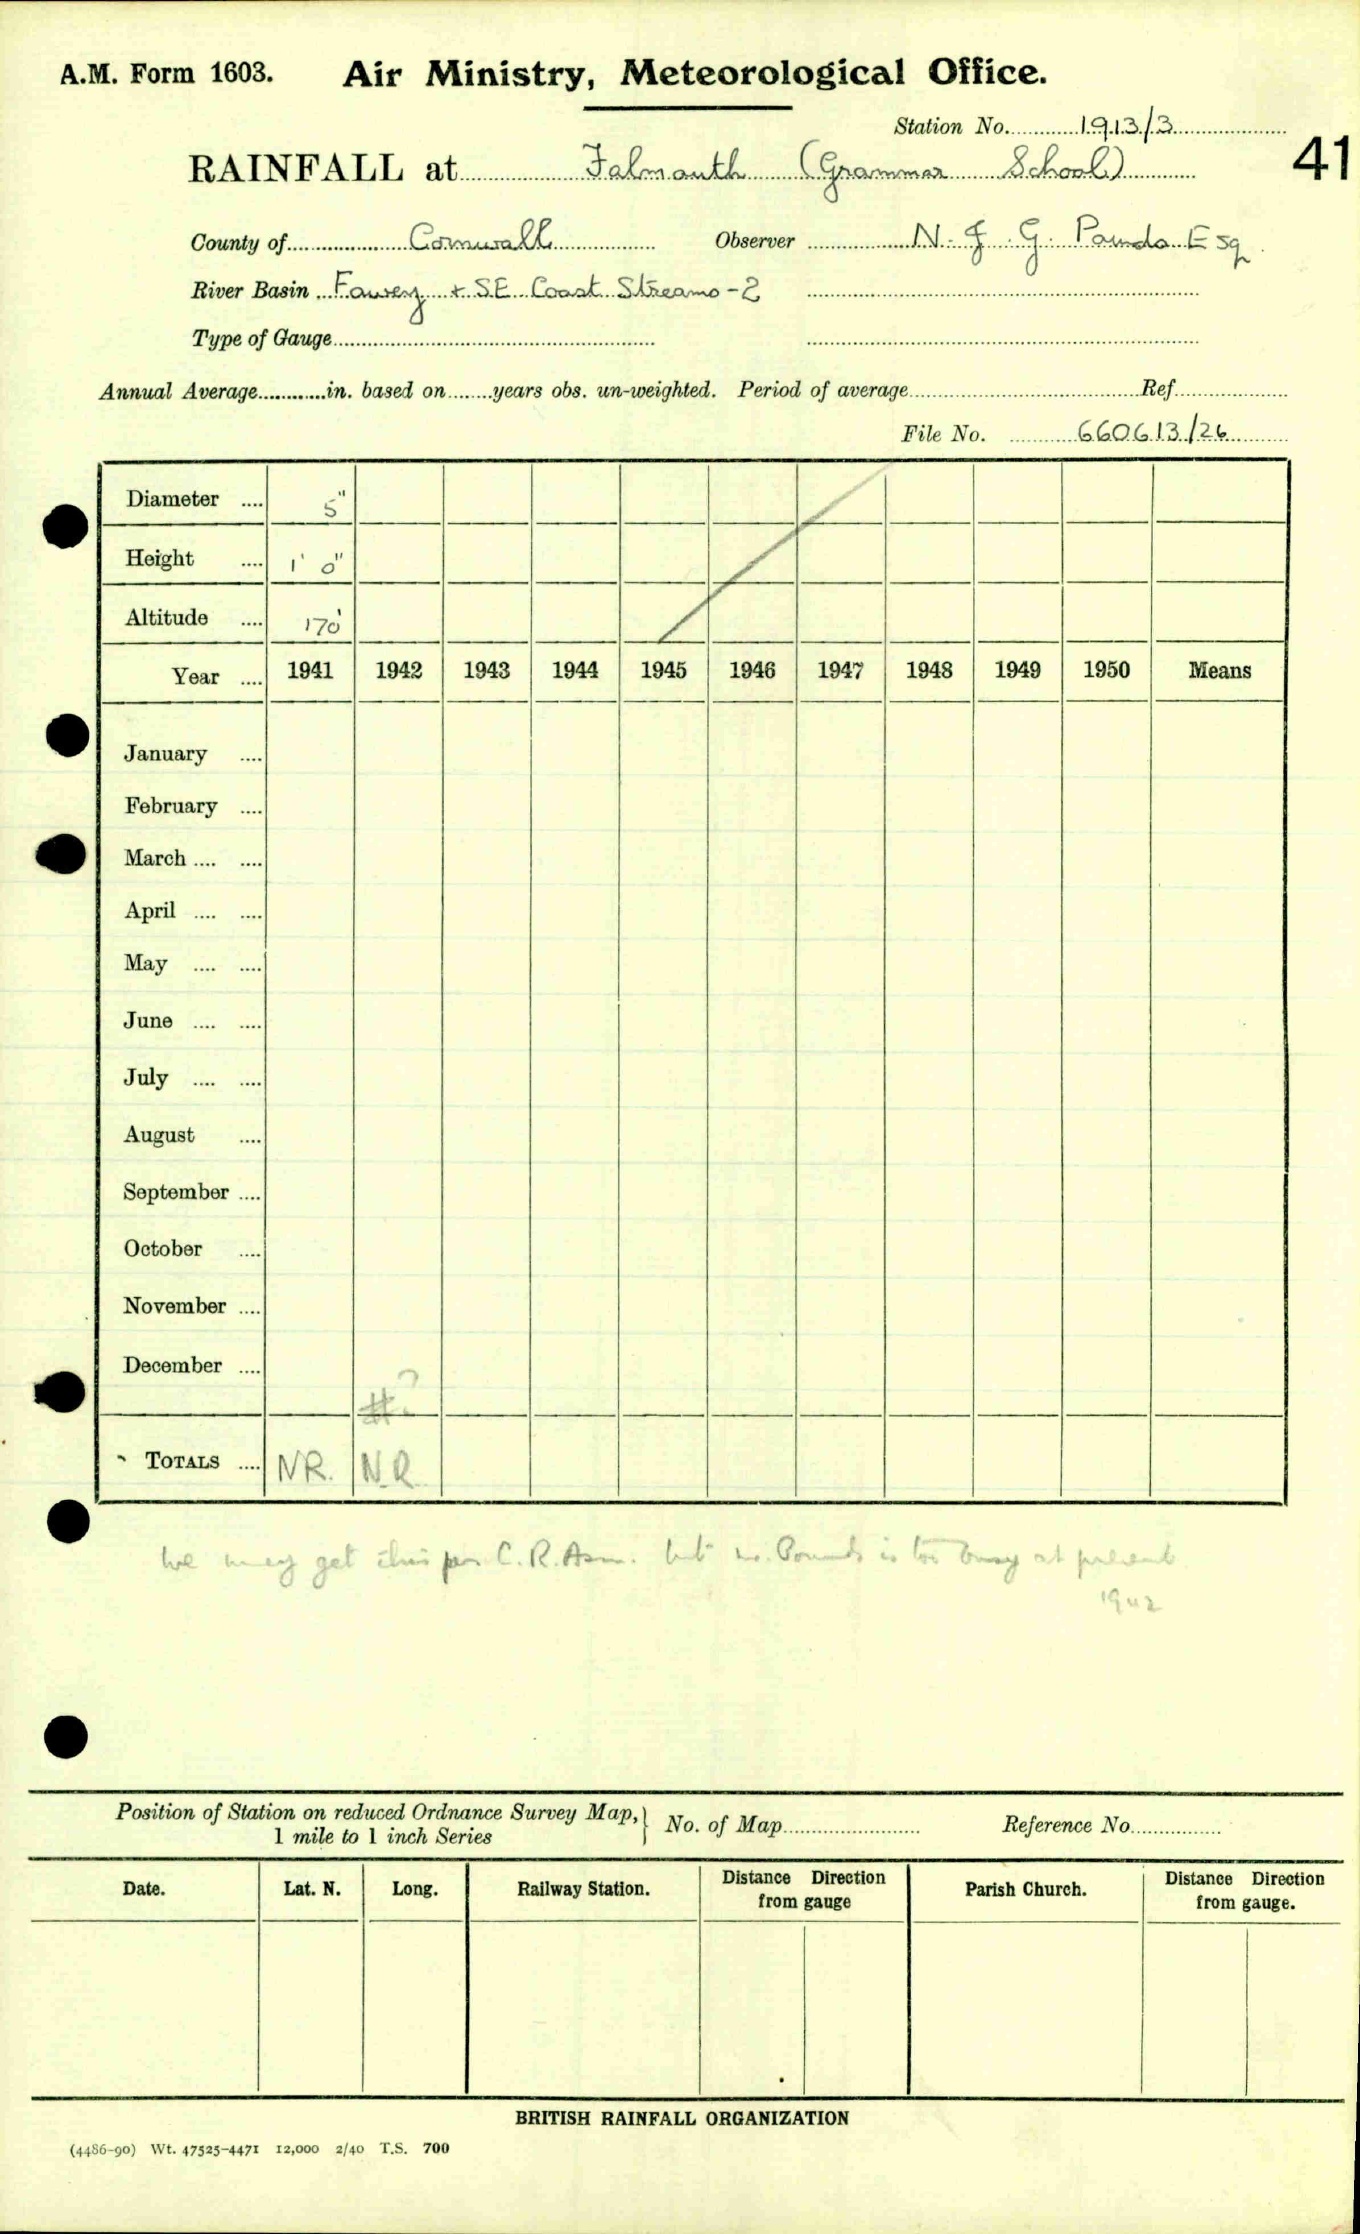 A.M. Form 1603. Air Ministry, Meteorological Office.
Station No. 1913/3
41
RAINFALL at Falmouth (Grammar School)
County of Cornwall Observer N. J. G. Pounds Esq.
River Basin Fowey + SE Coast Streams - 2
Type of Gauge
Annual Average in. based on years obs. un-weighted. Period of average Ref.
File No. 660613/26
Diameter 5"
Height 1' 0"
Altitude 170'
Year 1941 1942 1943 1944 1945 1946 1947 1948 1949 1950 Means
January
February
March
April
May
June
July
August
September
October
November
December
#?
TOTALS NR. N.R.
We may get this per C. R. Assn. but Mr. Pounds is too busy at present
1942
Position of Station on reduced Ordnance Survey Map, } No. of Map Reference No.
1 mile to 1 inch Series
Date. Lat. N. Long. Railway Station. Distance Direction from gauge Parish Church. Distance Direction from gauge.
BRITISH RAINFALL ORGANIZATION
(4486-90) Wt. 47525-4471 12,000 2/40 T.S. 700